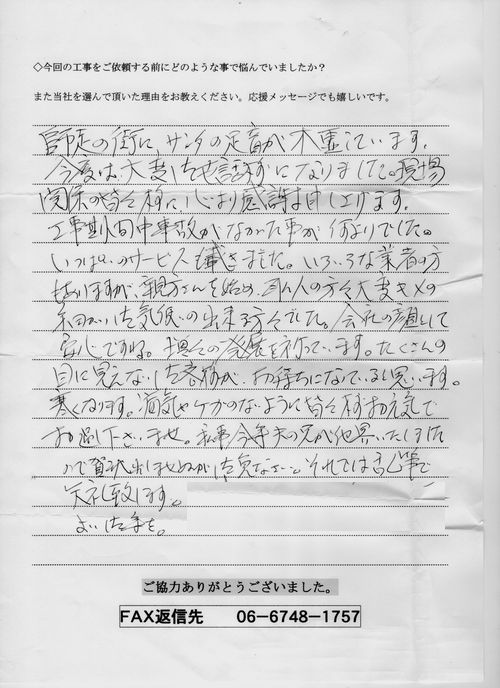 ◇今回の工事をご依頼する前にどのような事で悩んでいましたか？
また当社を選んで頂いた理由をお教えください。応援メッセージでも嬉しいです。
師走の街に、サンタの足音が木霊しています。
今度は大変お世話様になりました。現場
関係の皆々様に心より感謝申し上げます。
工事期間中事故がなかった事が何よりでした。
いっぱいのサービス戴きました。いろいろな業者の方
いますが、親方さんを始め、の人の方々大変キメの
細かいお気使いの出来る方々でした。会社の顔として
安心ですね。益々の発展を祈っています。たくさんの
目に見えないお客様が、お待ちになっていると思います。
寒くなります。病気やケガのないように皆々様お元気で
お過し下さいませ。私事今年夫の兄が他界いたしました
ので賀状出しませぬがお気なさい。それでは乱筆で
失礼致します。
よいお年を。
ご協力ありがとうございました。
FAX返信先 06-6748-1757